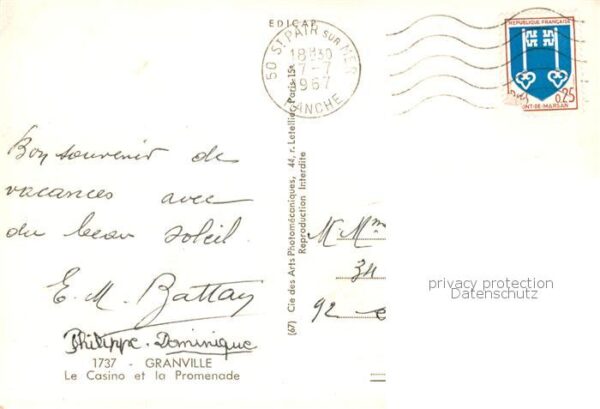 EDICAP
50 ST PAIR SUR MER
18H30
7-7
1967
MANCHE
REPUBLIQUE FRANÇAISE
0,25
MONT-DE-MARSAN
Bon souvenir de
vacances avec
du beau soleil.
E. M. Battay
Philippe - Dominique
1737 - GRANVILLE
Le Casino et la Promenade
(67) Cie des Arts Photomécaniques, 44, r. Letellier, Paris-15e
Reproduction Interdite
M. Mm
34
92
privacy protection
Datenschutz